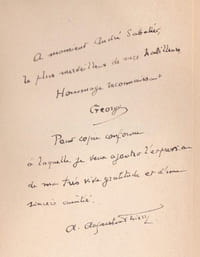 A monsieur André Sabatier,
le plus merveilleux de mes
Hommage reconnaissant
Georges
Pour copie conforme
à laquelle je veux ajouter l'expression
de ma très vive gratitude et d'une
sincère amitié.
A.